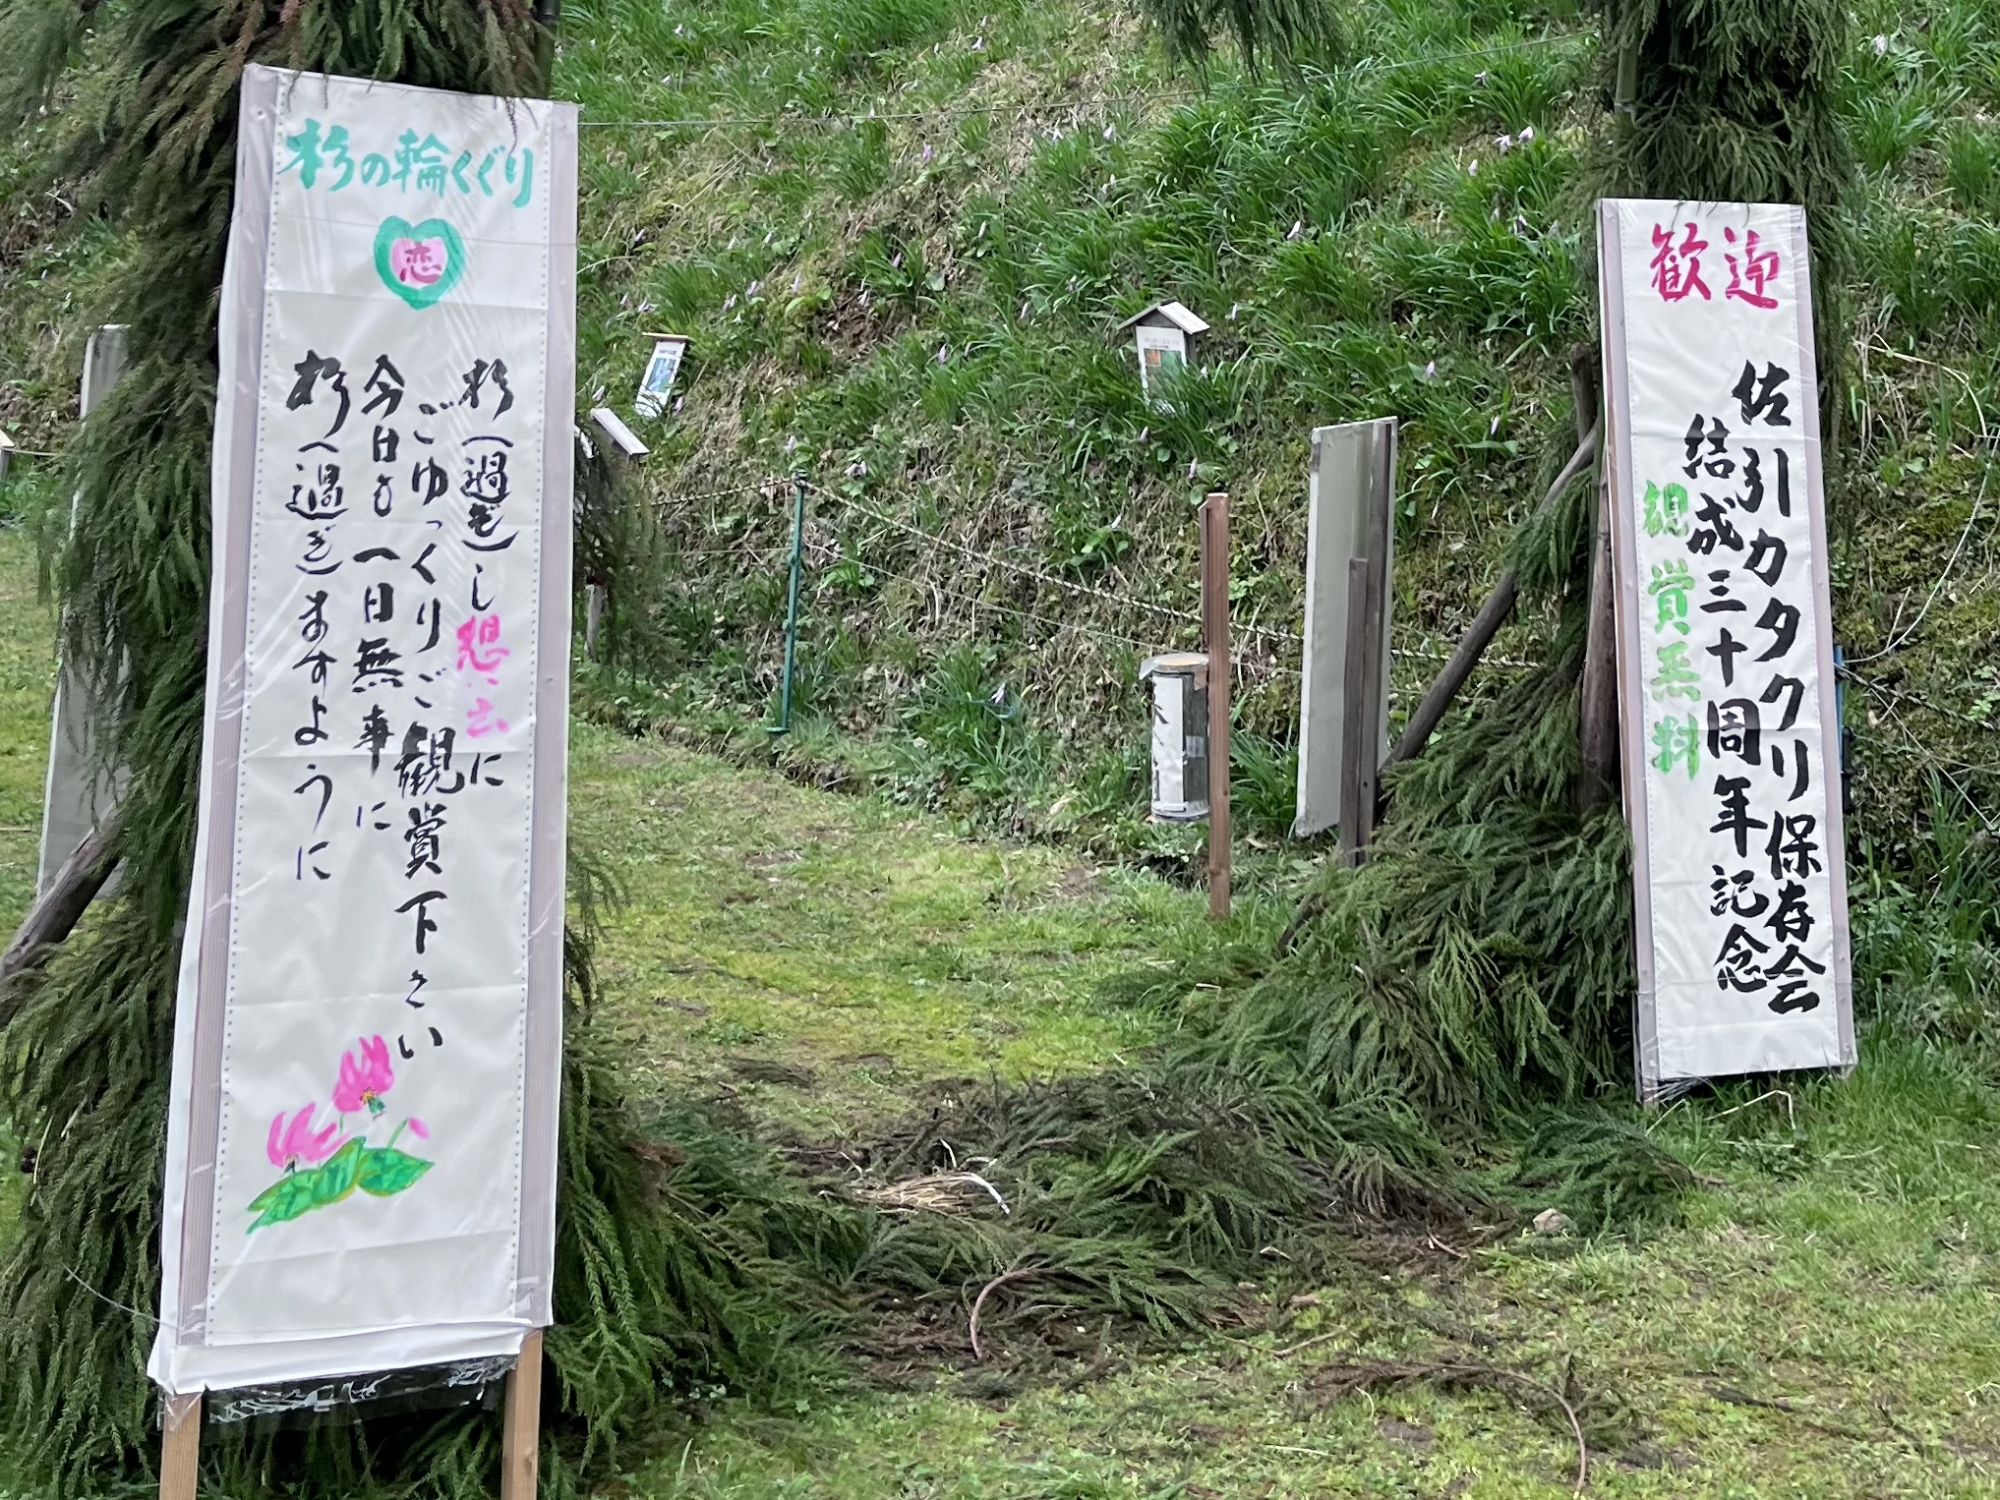 杉の輪くぐり
恋
杉(過ぎ)し想い出に
ごゆっくりご観賞下さい
今日も一日無事に
杉(過ぎ)ますように
歓迎
佐引カタクリ保存会
結成三十周年記念
観賞無料